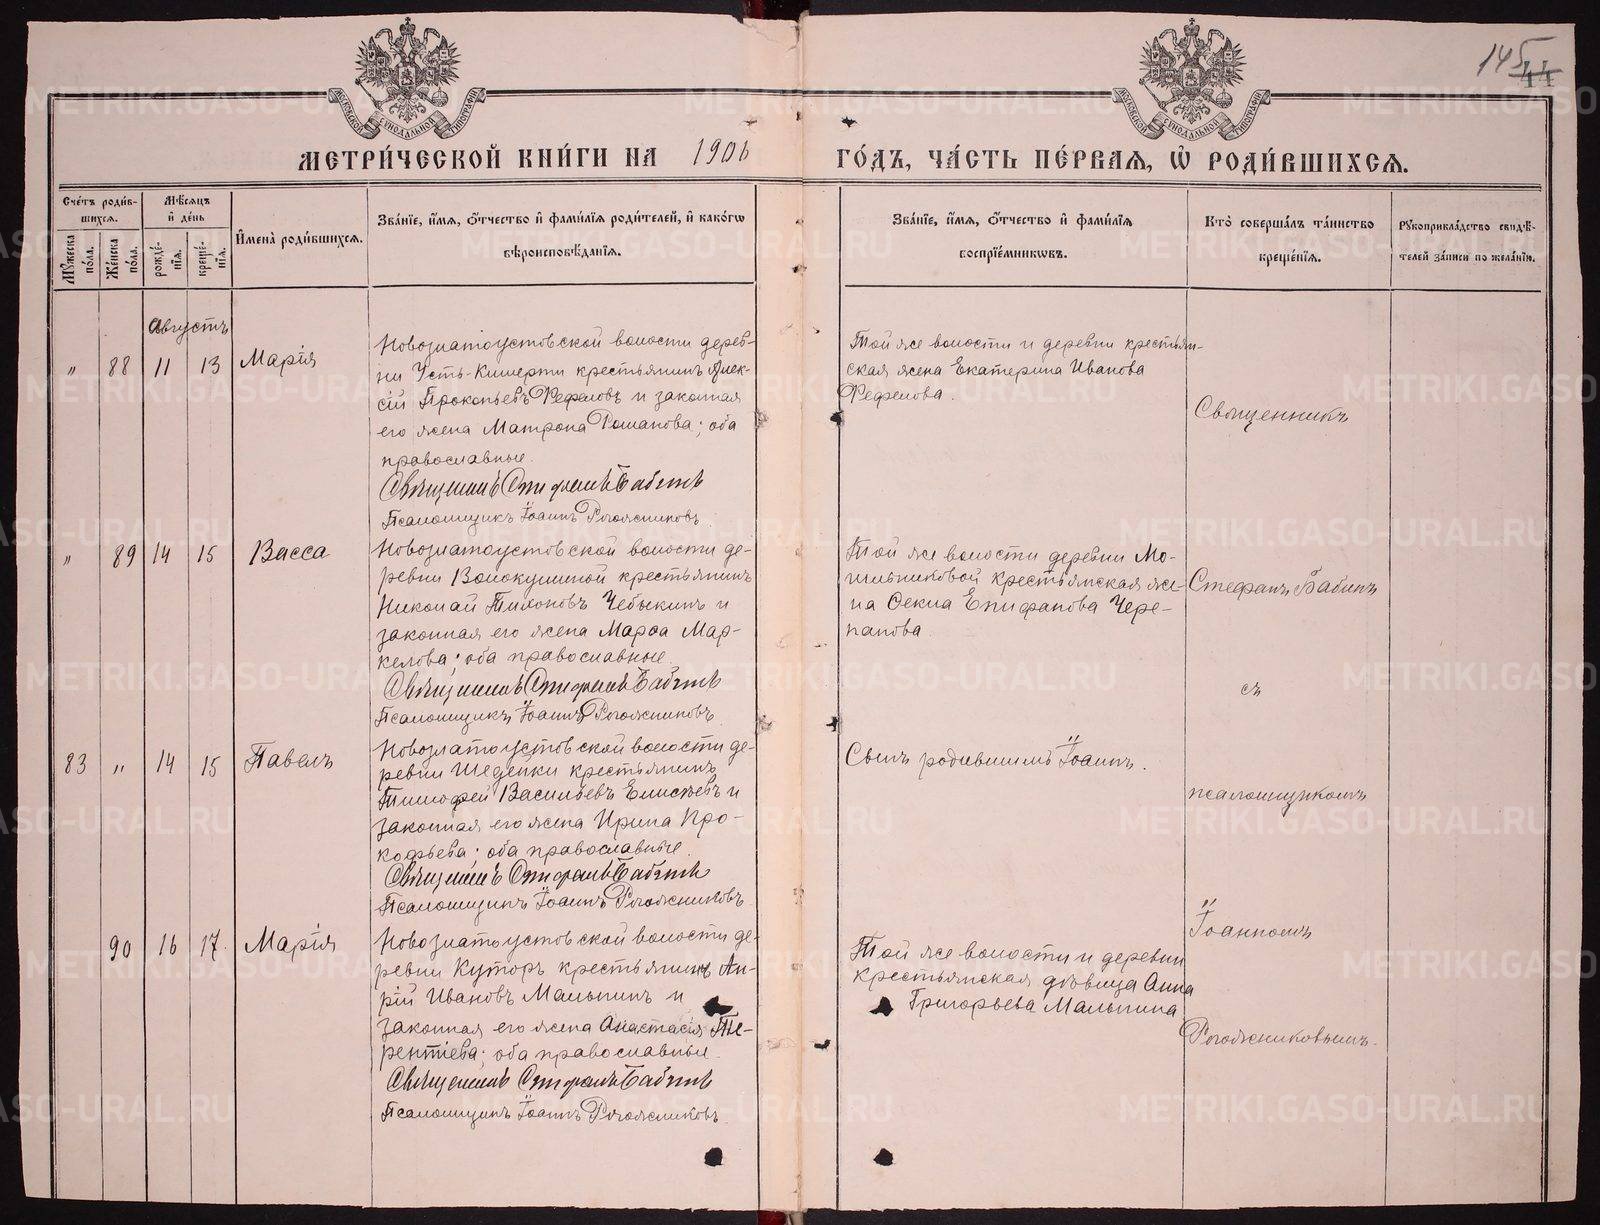 145 44
МОСКОВСКОЙ СУНОДАЛЬНОЙ ТИПОГРАФІИ
МОСКОВСКОЙ СУНОДАЛЬНОЙ ТИПОГРАФІИ
МЕТРИ́ЧЕСКОЙ КНИ́ГИ НА 1906 ГО́ДЪ, ЧА́СТЬ ПЕ́РВАЯ, Ѡ РОДИ́ВШИХСЯ.
Сче́тъ роди́вшихся.
Му́жеска по́ла.
Же́нска по́ла.
Мѣ́сяцъ и де́нь
рожде́нія.
креще́нія.
Имена̀ роди́вшихся.
Зва́ніе, и́мя, о́тчество и фами́лія роди́телей, и како́гѡ
вѣроисповѣ́данія.
Зва́ніе, и́мя, о́тчество и фами́лія
воспріе́мникѡвъ.
Кто̀ соверша́лъ та́инство
креще́нія.
Рукоприкла́дство свидѣ́-
телей за́писи по жела́нію.
Августъ
" 88 11 13 Марія
Новозлатоустовской волости дерев-
ни Усть-Кишерти крестьянинъ Алек-
сій Прокопьевъ Фефеловъ и законная
его жена Матрона Романова; оба
православные.
Священникъ Стефанъ Бабинъ
Псаломщикъ Іоаннъ Рогожниковъ.
Той же волости и деревни крестьян-
ская жена Екатерина Иванова
Фефелова.
Священникъ
" 89 14 15 Васса
Новозлатоустовской волости де-
ревни Волокушиной крестьянинъ
Николай Тихоновъ Чебыкинъ и
законная его жена Марѳа Мар-
келова; оба православные.
Священникъ Стефанъ Бабинъ
Псаломщикъ Іоаннъ Рогожниковъ.
Той же волости деревни Мо-
гильниковой крестьянская же-
на Ѳекла Епифанова Чере-
панова.
Стефанъ Бабинъ
съ
83 " 14 15 Павелъ
Новозлатоустовской волости де-
ревни Шеденки крестьянинъ
Тимофей Васильевъ Елисѣевъ и
законная его жена Ирина Про-
кофьева; оба православные.
Священникъ Стефанъ Бабинъ
Псаломщикъ Іоаннъ Рогожниковъ
Сынъ родившимъ Іоаннъ.
псаломщикомъ
Іоанномъ
90 16 17. Марія
Новозлатоустовской волости де-
ревни Куторъ крестьянинъ Ан-
рій Ивановъ Мальпинъ и
законная его жена Анастасія Те-
рентіева; оба православны.
Священникъ Стефанъ Бабинъ
Псаломщикъ Іоаннъ Рогожниковъ.
Той же волости и деревни
крестьянская дѣвица Анна
Григорьева Мальпина
Рогожниковымъ.
METRIKI.GASO-URAL.RU